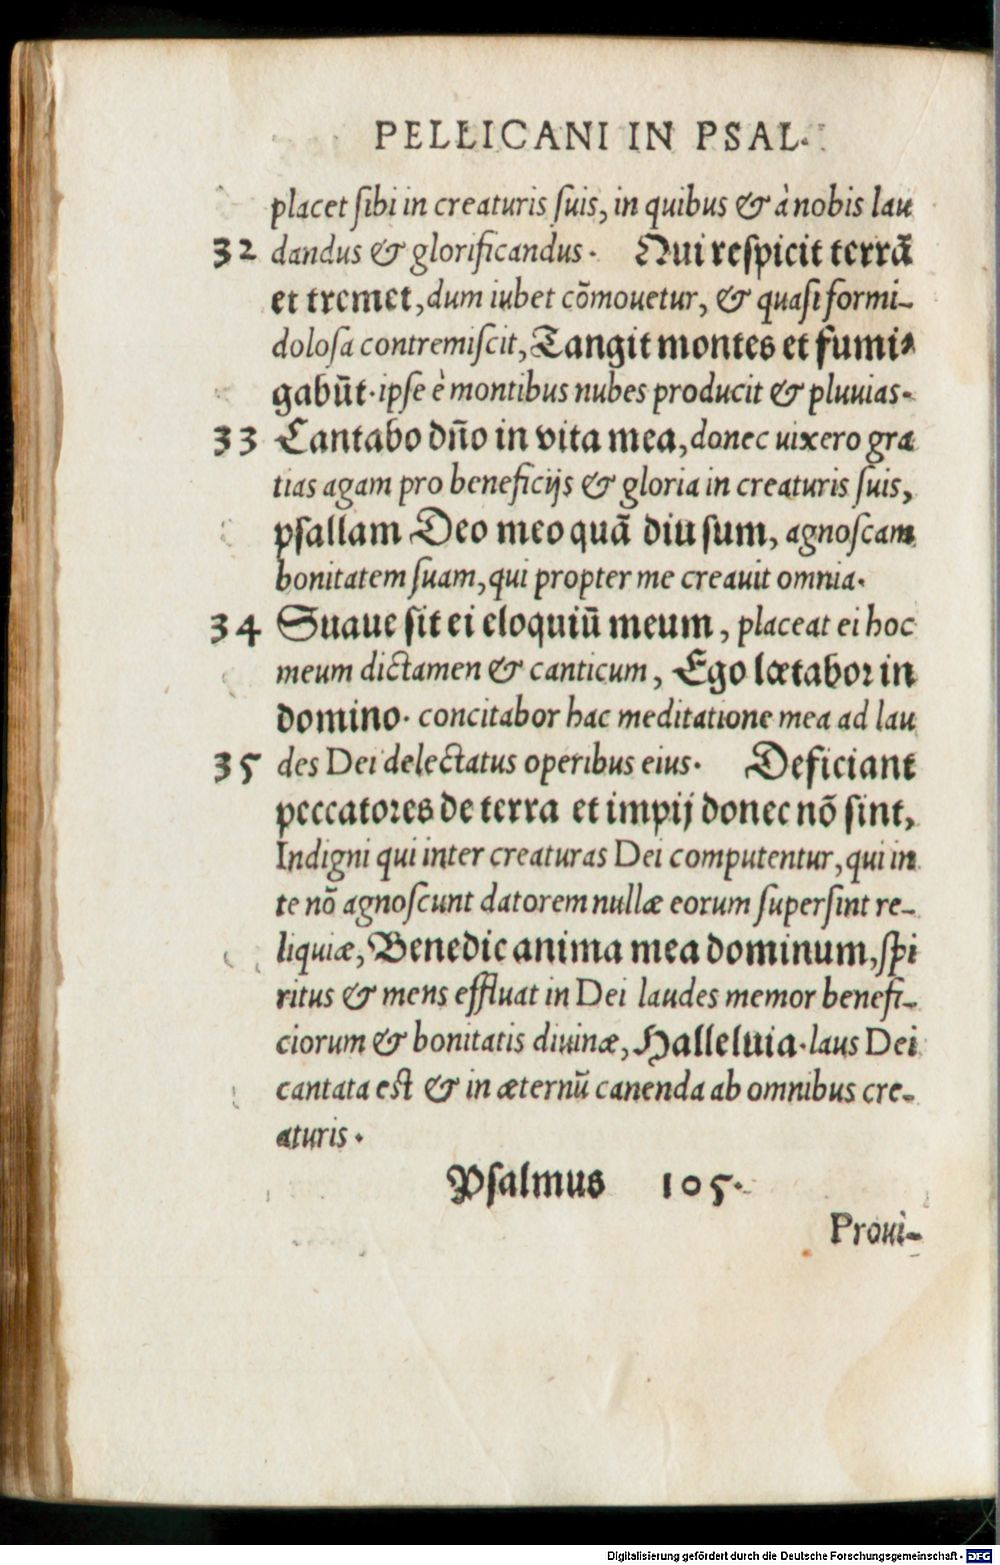 PELLICANI IN PSAL.
placet ſibi in creaturis ſuis, in quibus & à nobis lau
32 dandus & glorificandus. Qui reſpicit terrã
et tremet, dum iubet cõmouetur, & quaſi formi-
doloſa contremiſcit, Tangit montes et fumi-
gabũt. ipſe è montibus nubes producit & pluuias.
33 Cantabo dño in vita mea, donec uixero gra
tias agam pro beneficijs & gloria in creaturis ſuis,
pſallam Deo meo quã diu ſum, agnoſcam
bonitatem ſuam, qui propter me creauit omnia.
34 Suaue ſit ei eloquiũ meum, placeat ei hoc
meum dictamen & canticum, Ego lætabor in
domino. concitabor hac meditatione mea ad lau
35 des Dei delectatus operibus eius. Deficiant
peccatores de terra et impij donec nõ ſint,
Indigni qui inter creaturas Dei computentur, qui in
te nõ agnoſcunt datorem nullæ eorum ſuperſint re-
liquiæ, Benedic anima mea dominum, ſpi
ritus & mens effluat in Dei laudes memor benefi-
ciorum & bonitatis diuinæ, Halleluia. laus Dei
cantata est & in æternũ canenda ab omnibus cre-
aturis.
Pſalmus 105.
Proui-
Digitalisierung gefördert durch die Deutsche Forschungsgemeinschaft - DFG